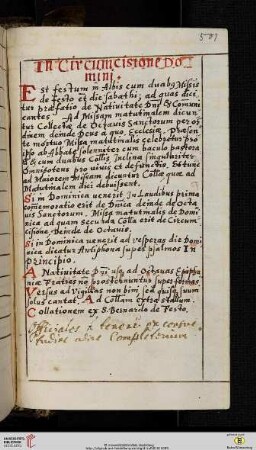 587
In Circumcisione Do-
mini.
Est festum in Albis cum duabus Missis
de festo et die sabathi; ad quas dici-
tur præfatio de Nativitate Dni & Comuni
cantes. Ad Missam matutinalem dicun
tur Collectæ de Octavis Sanctorum per or
dinem deinde Deus a quo, Ecclesiæ, Præsen
te mortuo Missa matutinalis celebretur pro
ipso ab Abbate solennites cum baculo pastora
li & cum duabus Collis Inclina singulariter
Omnipotens pro vivis et defunctis.
ad Maiorem Missam dicuntur Collæ quæ ad
Matutinalem dici debuissent.
Si in Dominica venerit in Laudibus prima
comemoratio erit de Dnica deinde de octa
vis Sanctorum. Missa matutinalis de Domi
nica ad quam secunda Colla erit de Circum
cisione, Deinde de Octavis.
Si in Dominica venerit ad vesperas die Domi
nica dicatur Antiphona super psalmos In
Principio.
A Nativitate Dni usq ad Octavas Epiphaniæ
Fratres no prosternuntur super formas.
Versus ad Vigilias non bini sed quisq suum
solus cantat. Ad Collam extra stallum.
Collationem ex S. Bernardo de Festo.
Officiales
Completorium